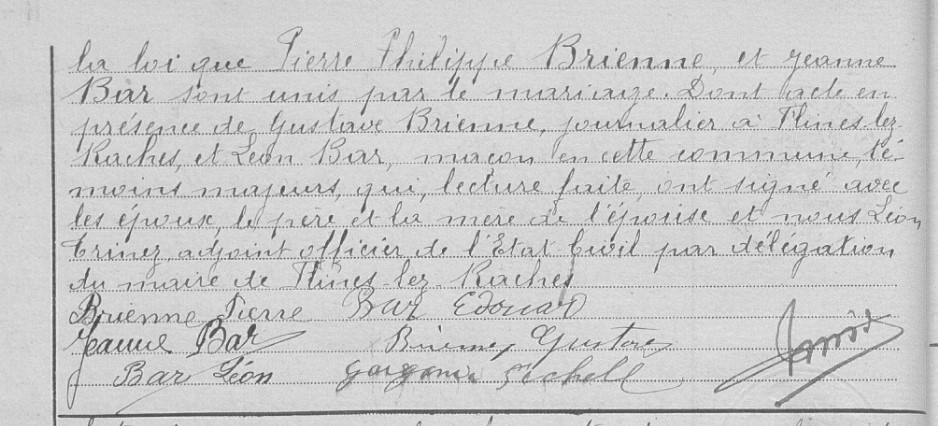 la loi que Pierre Philippe Brienne, et Jeanne
Bar sont unis par le mariage. Dont acte en
présence de Gustave Brienne, journalier à Flines-lez-
Raches, et Léon Bar, maçon en cette commune, té-
moins majeurs, qui, lecture faite, ont signé avec
les époux, le père et la mère de l'épouse et nous Léon
Trinez adjoint officier de l'Etat Civil par délégation
du maire de Flines-lez-Raches
Brienne Pierre Bar Edouard
Jeanne Bar Brienne Gustave
Bar Léon